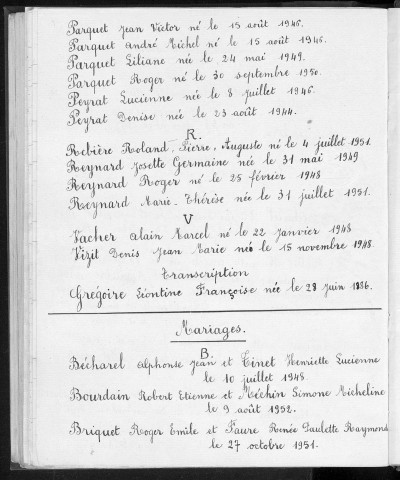 Parquet Jean Victor né le 15 août 1946.
Parquet André Michel né le 15 août 1946.
Parquet Liliane née le 24 mai 1949.
Parquet Roger né le 30 septembre 1950.
Peyrat Lucienne née le 8 juillet 1946.
Peyrat Denise née le 23 août 1944.
R.
Rebière Roland, Pierre, Auguste né le 4 juillet 1951.
Reynard Josette Germaine née le 31 mai 1949
Reynard Roger né le 25 février 1948
Reynard Marie-Thérèse née le 31 juillet 1951.
V
Vacher Alain Marcel né le 22 Janvier 1948
Vizit Denis Jean Marie né le 15 novembre 1948.
Transcription
Grégoire Léontine Françoise née le 28 Juin 1886.
Mariages.
B.
Bécharel Alphonse Jean et Tinet Henriette Lucienne
le 10 juillet 1948.
Bourdain Robert Etienne et Méchin Simone Micheline
le 9 août 1952.
Briquet Roger Emile et Faure Renée Paulette Raymond
le 27 octobre 1951.